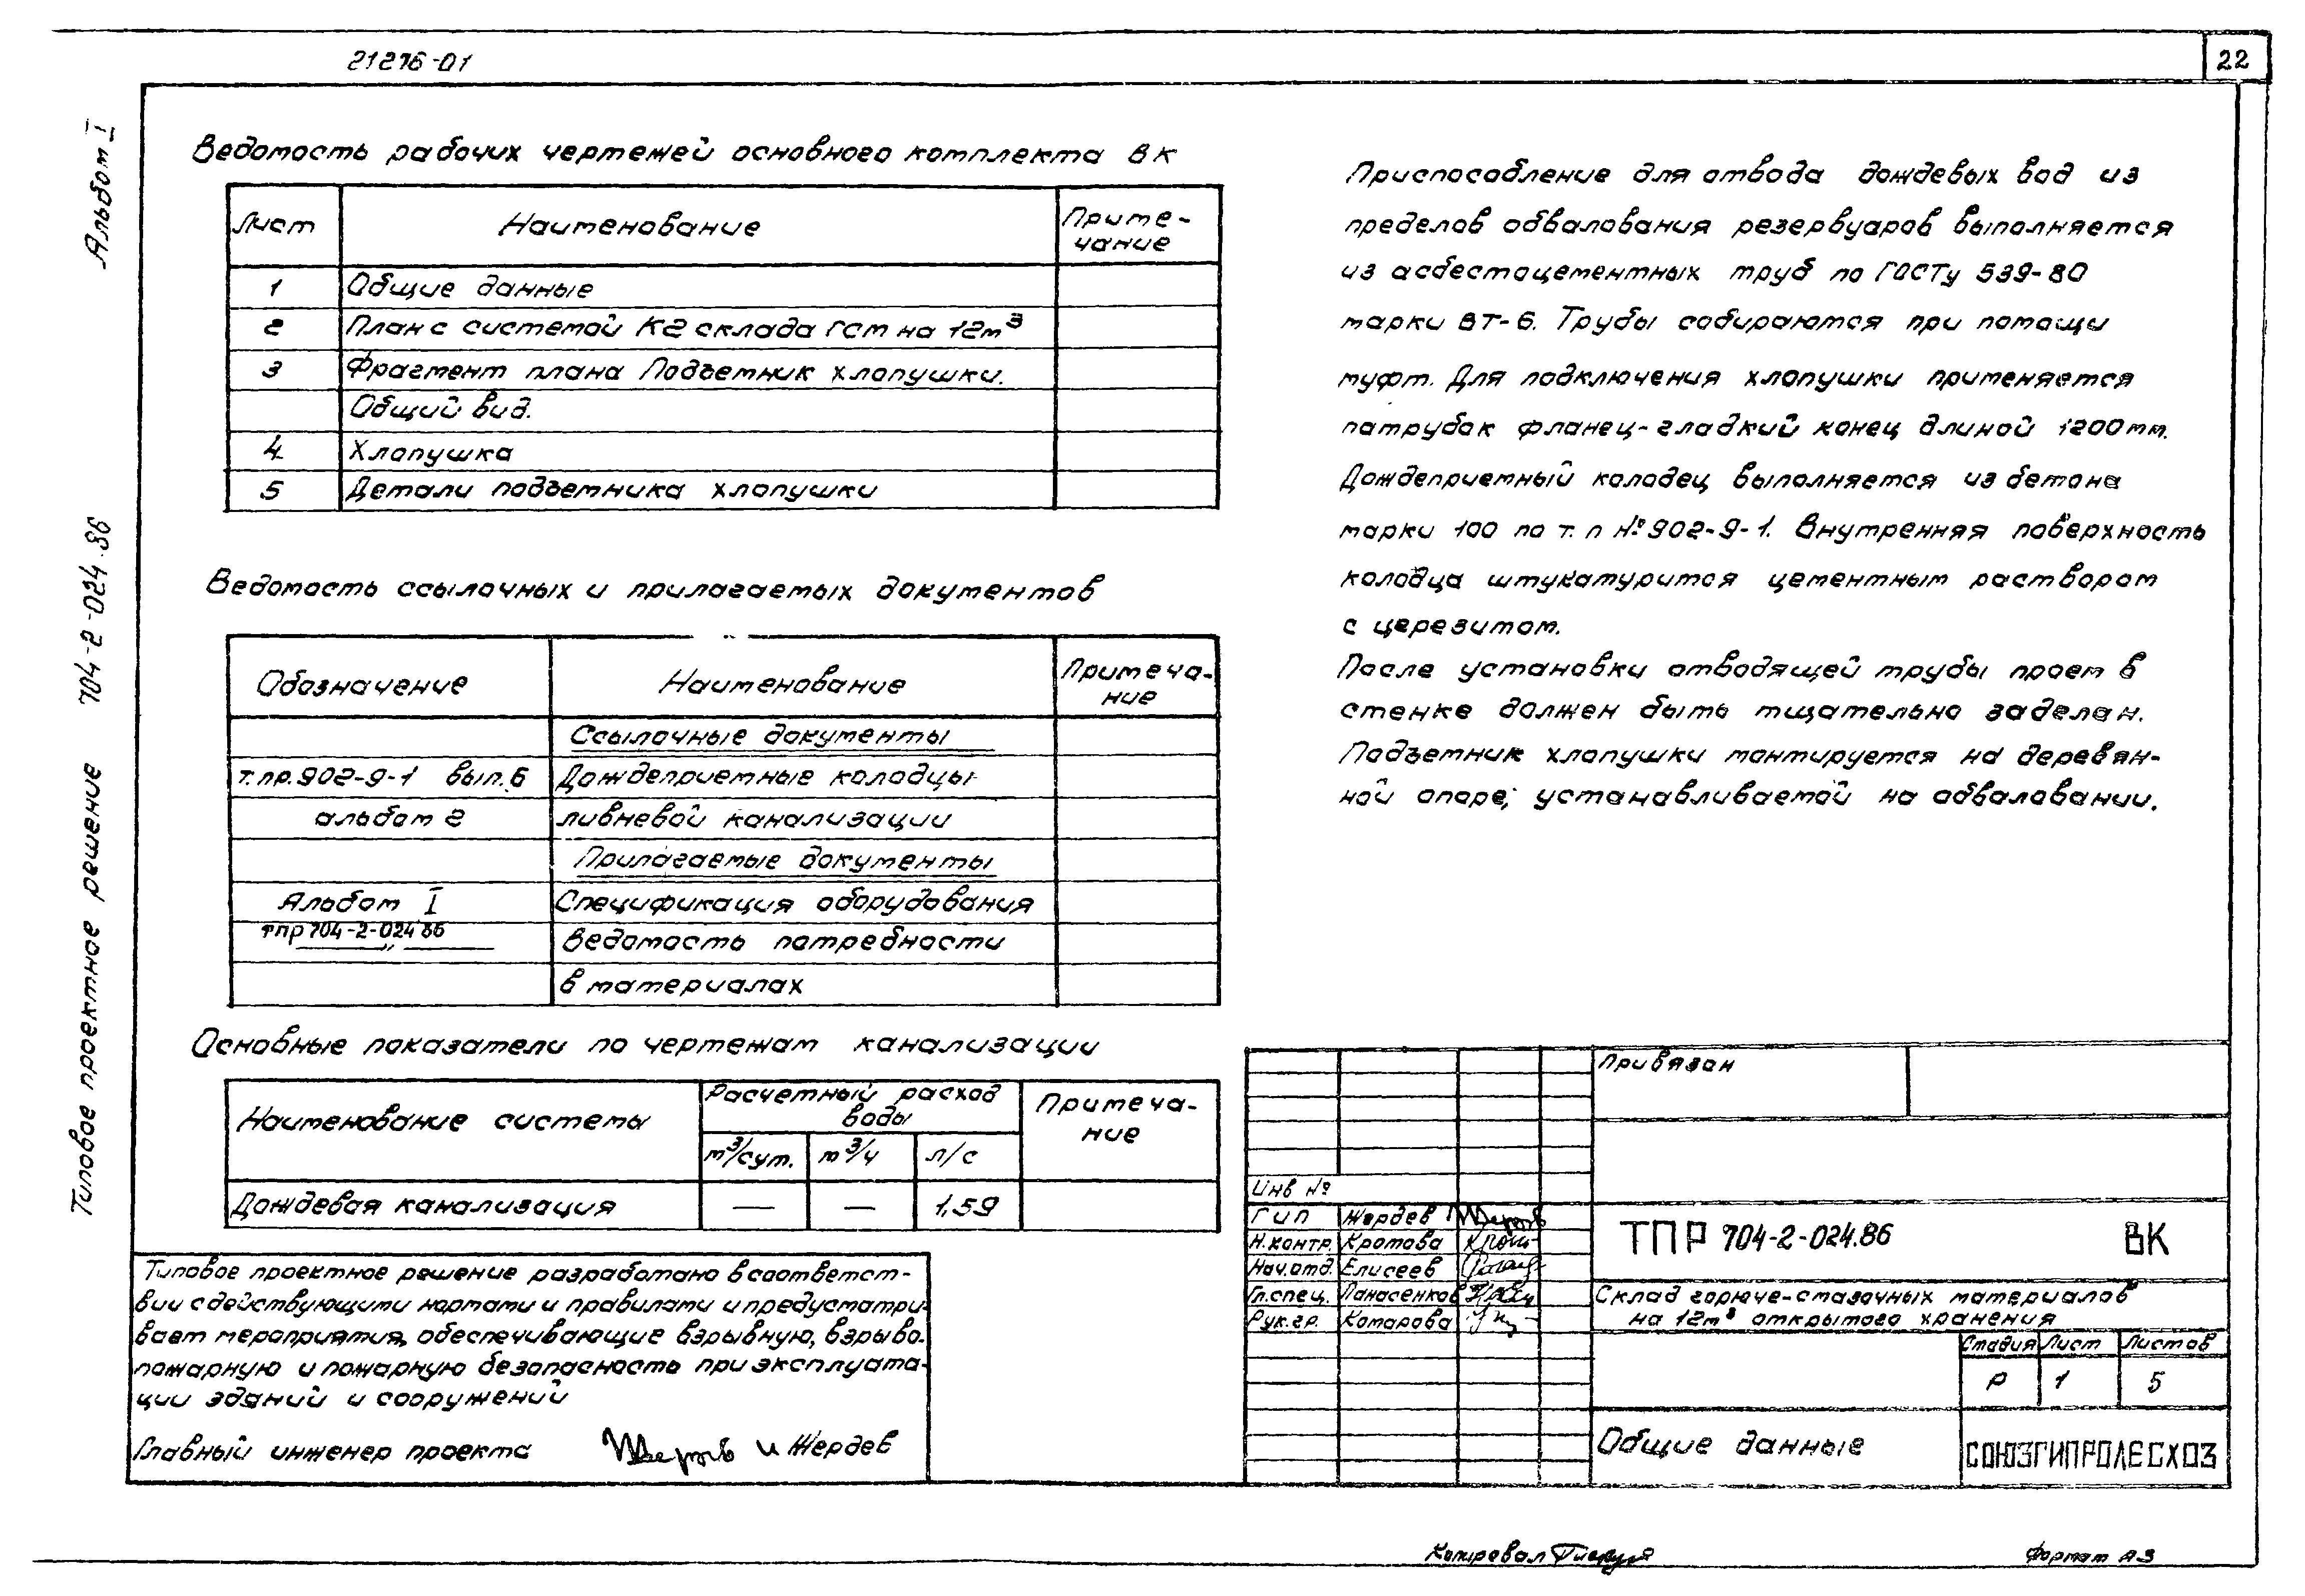 21276-01
22
Альбом I
Типовое проектное решение 704-2-024.86
Ведомость рабочих чертежей основного комплекта ВК
Лист
Наименование
Приме-
чание
1
Общие данные
2
План с системой К2 склада ГСМ на 12м³
3
Фрагмент плана Подъемник хлопушки.
Общий вид.
4
Хлопушка
5
Детали подъемника хлопушки
Ведомость ссылочных и прилагаемых документов
Обозначение
Наименование
Примеча-
ние
Ссылочные документы
т.пр.902-9-1 вып.6
Дождеприемные колодцы
альбом 2
ливневой канализации
Прилагаемые документы
Альбом I
Спецификация оборудования
тпр 704-2-024.86
—„—
Ведомость потребности
в материалах
Основные показатели по чертежам канализации
Наименование системы
Расчетный расход
воды
Примеча-
ние
м³/сут.
м³/ч
л/с
Дождевая канализация
—
—
1,59
Типовое проектное решение разработано в соответст-
вии с действующими нормами и правилами и предусматри-
вает мероприятия, обеспечивающие взрывную, взрыво-
пожарную и пожарную безопасность при эксплуата-
ции зданий и сооружений
Главный инженер проекта
И Жердев
Приспособление для отвода дождевых вод из
пределов обвалования резервуаров выполняется
из асбестоцементных труб по ГОСТу 539-80
марки ВТ-6. Трубы собираются при помощи
муфт. Для подключения хлопушки применяется
патрубок фланец-гладкий конец длиной 1200мм.
Дождеприемный колодец выполняется из бетона
марки 100 по т. п №902-9-1. Внутренняя поверхность
колодца штукатурится цементным раствором
с церезитом.
После установки отводящей трубы проем в
стенке должен быть тщательно заделан.
Подъемник хлопушки монтируется на деревян-
ной опоре, устанавливаемой на обваловании.
Привязан
Инв №
ГИП Жердев
Н.контр. Кротова
Нач.отд. Елисеев
Гл.спец. Панасенков
Рук.гр. Комарова
ТПР 704-2-024.86 ВК
Склад горюче-смазочных материалов
на 12м³ открытого хранения
Стадия Лист Листов
Р 1 5
Общие данные
СОЮЗГИПРОЛЕСХОЗ
Копировал
Формат А3